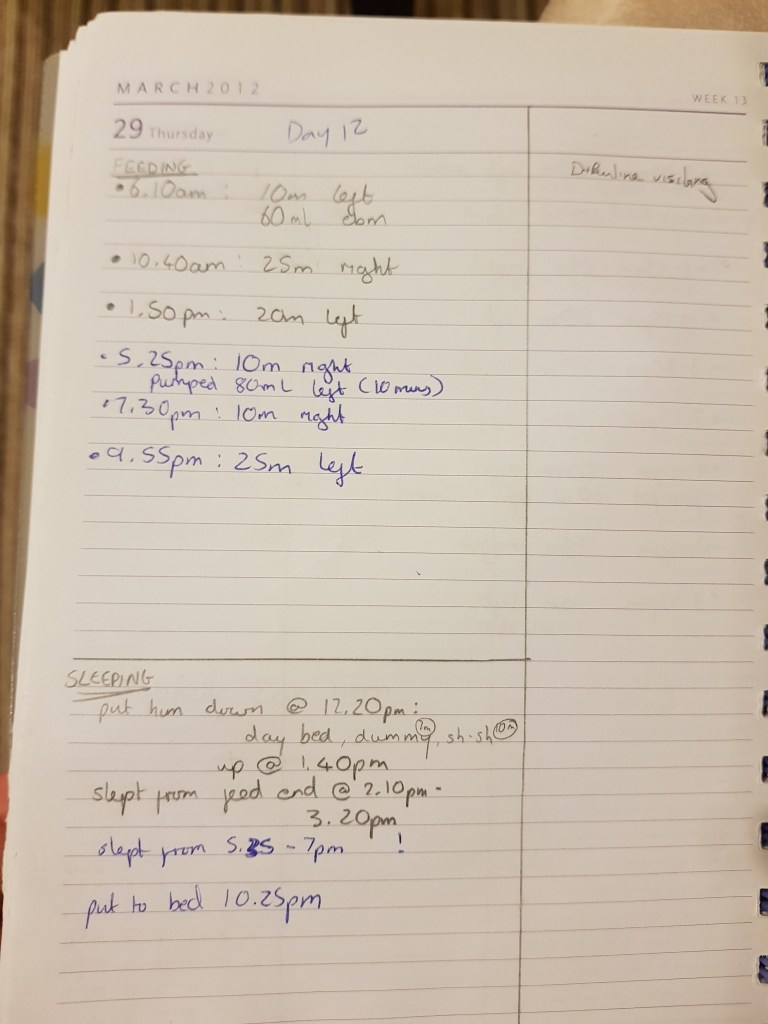 MARCH 2012
WEEK 13
29 Thursday Day 12
FEEDING
• 6.10am : 10m left
60ml ebm
• 10.40am : 25m right
• 1.50pm : 20m left
• 5.25pm : 10m right
pumped 80mL left (10 mins)
• 7.30pm : 10m right
• 9.55pm : 25m left
SLEEPING
put him down @ 12.20pm :
day bed, dummy 2m, sh-sh 10m
up @ 1.40pm
slept from feed end @ 2.10pm -
3.20pm
slept from 5.35 - 7pm !
put to bed 10.25pm